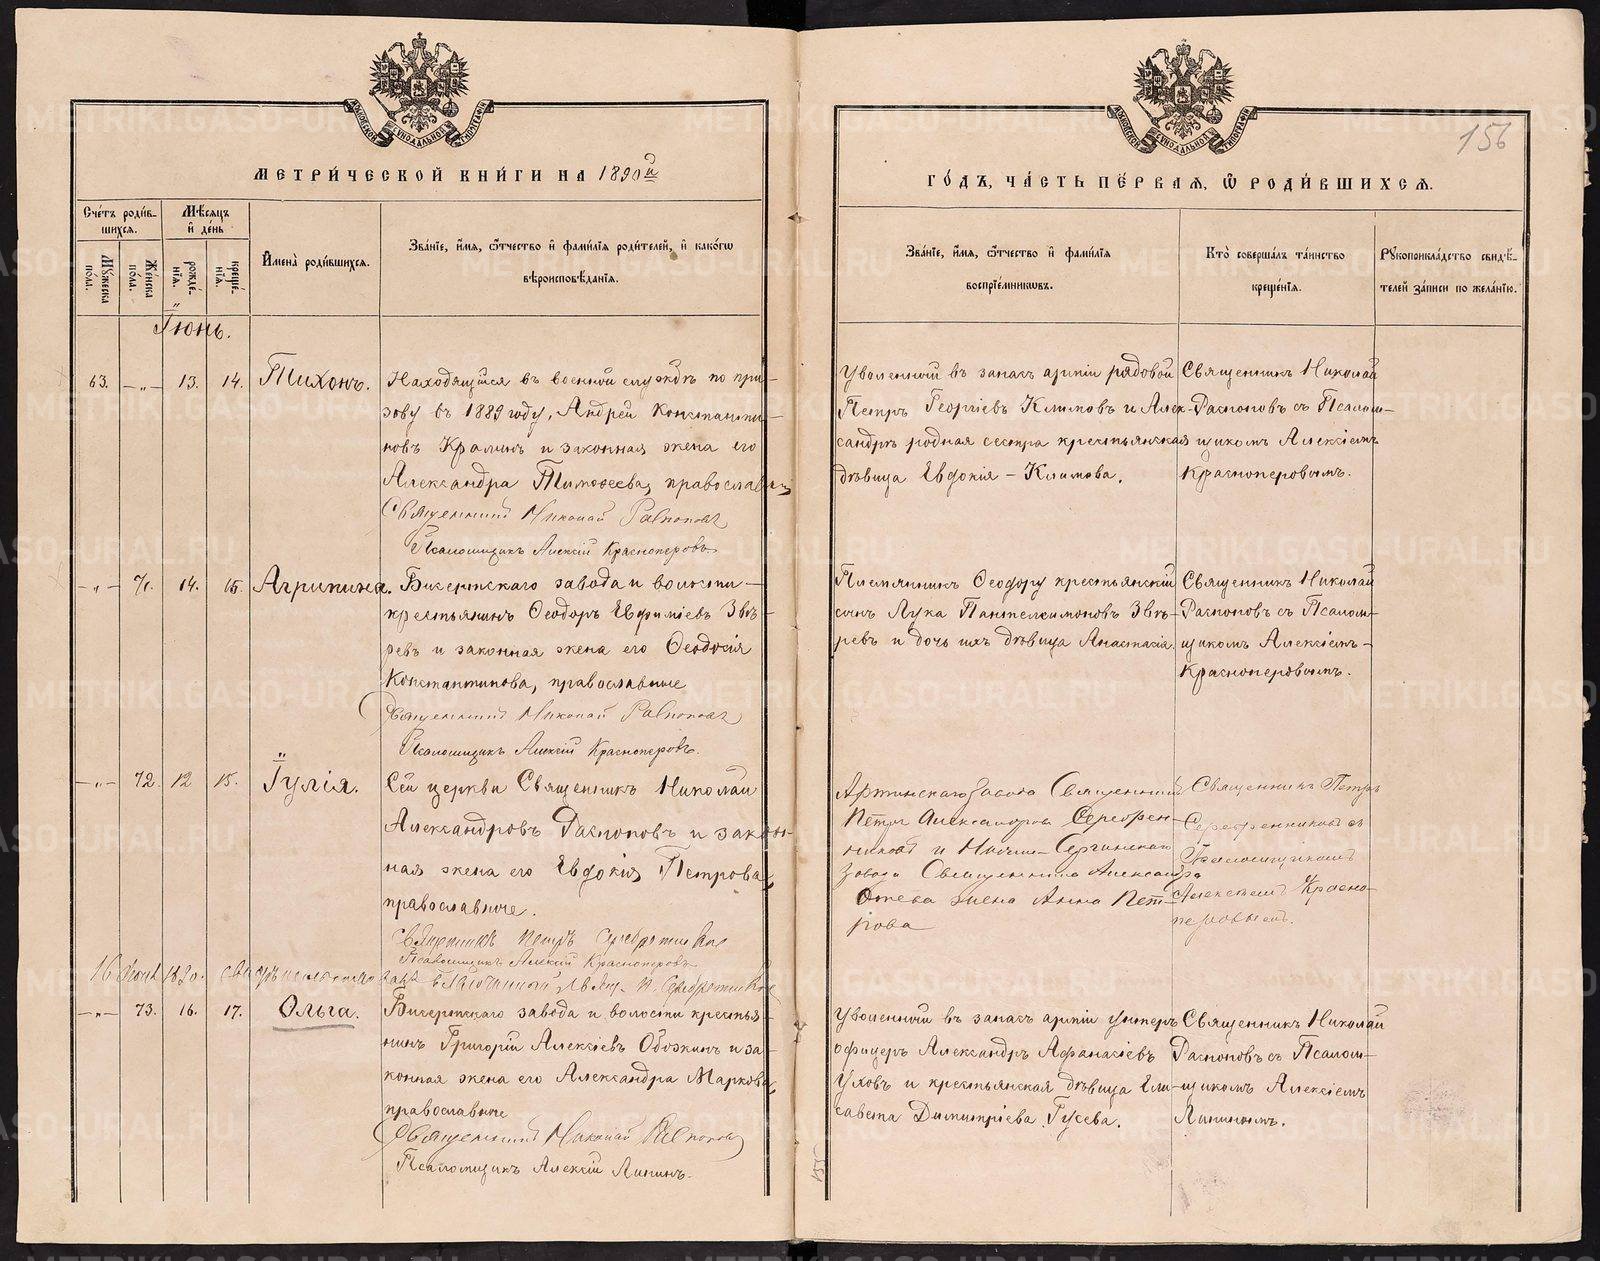 МЕТРИ́ЧЕСКОЙ КНИ́ГИ НА 1890й
Счетъ роди́в-
шихся.
Мѣсяцъ
и де́нь
Мꙋжеска
пола.
Же́нска
пола.
рожде́-
нїѧ.
креще́-
нїѧ.
И҆мена̀ роди́вшихсѧ.
Зва́нїе, и҆́мѧ, ѻ҆́тчество и҆ фами́лїѧ роди́телей, и҆ како́гѡ
вѣроисповѣ́данїѧ.
Іюнь.
63. — „ — 13. 14. Тихонъ.
Находящійся въ военной службѣ по при-
зову въ 1889 году, Андрей Константи-
новъ Крамин и законная жена его
Александра Тимоѳеева, православн
Священникъ Николай Распоповъ
Псаломщикъ Алексій Красноперовъ
— „ — 71. 14. 15. Агрипина.
Бисертскаго завода и волости —
крестьянинъ Ѳеодоръ Евфиміевъ Звѣ-
ревъ и законная жена его Ѳеодосія
Константинова, православные
Священникъ Николай Распоповъ
Псаломщикъ Алексій Красноперовъ.
— „ — 72. 12 15. Іулія.
Сей церкви Священникъ Николай
Александровъ Распоповъ и закон-
ная жена его Евдокія Петрова,
православные.
Священникъ Петръ Серебренниковъ
Псаломщикъ Алексій Красноперовъ
16 Іюня 1890.
— „ — 73. 16. 17. Ольга.
Бисертскаго завода и волости крестья-
нинъ Григорій Алексіевъ Обожинъ и за-
конная жена его Александра Маркова,
православные
Священникъ Николай Распоповъ
Псаломщикъ Алексій Лапинъ.
156
ГО́ДЪ, ЧА́СТЬ ПЕ́РВАЯ, Ѽ РОДИ́ВШИХСѦ.
Зва́нїе, и҆́мѧ, ѻ҆́тчество и҆ фами́лїѧ
воспрїе́мникѡвъ.
Кто̀ соверша́лъ та́инство
креще́нїѧ.
Рꙋкоприкла́дство свидѣ́-
телей за́писи по жела́нїю.
Уволенный въ запасъ арміи рядовой
Петръ Георгіевъ Климовъ и Алек-
сандръ родная сестра крестьянская
дѣвица Евдокія — Климова.
Священникъ Николай
Распоповъ съ Псалом-
щикомъ Алексіемъ
Красноперовымъ.
Племянникъ Ѳеодору крестьянскій
сынъ Лука Пантелеимоновъ Звѣ-
ревъ и дочь ихъ дѣвица Анастасія.
Священникъ Николай
Распоповъ съ Псалом-
щикомъ Алексіемъ —
Красноперовымъ.
Артинскаго Завода Священникъ
Петръ Александровъ Серебрен-
никовъ и Нижне-Сергинскаго
Завода Священника Александра
жена Анна Пет-
рова
Священникъ Петръ
Серебренниковъ съ
Псаломщикомъ
Алексѣемъ Красно-
перовымъ.
Уволенный въ запасъ арміи унтеръ
офицеръ Александръ Аѳанасіевъ
Уховъ и крестьянская дѣвица Ели-
савета Димитріева Гусева.
Священникъ Николай
Распоповъ съ Псалом-
щикомъ Алексіемъ
Лапинымъ.
METRIKI.GASO-URAL.RU